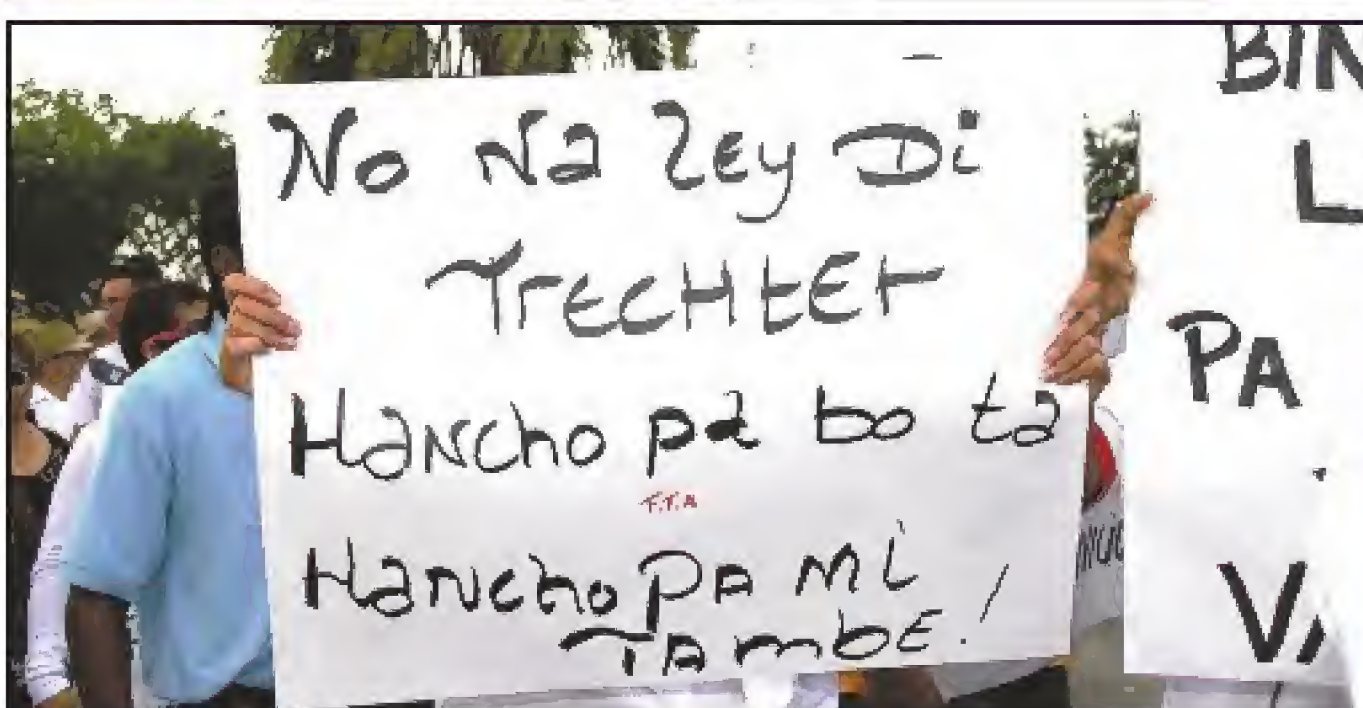 No Na ley Di
TrECHtEr
HaNcho pa bo ta
T.T.A
HaNcho PA Mi
TAmbE.!
BIN
L
PA